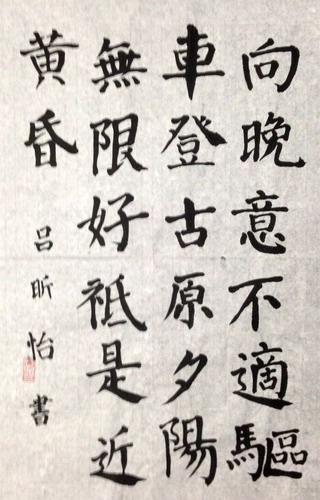 向晚意不適驅
車登古原夕陽
無限好祗是近
黃昏
呂昕怡書